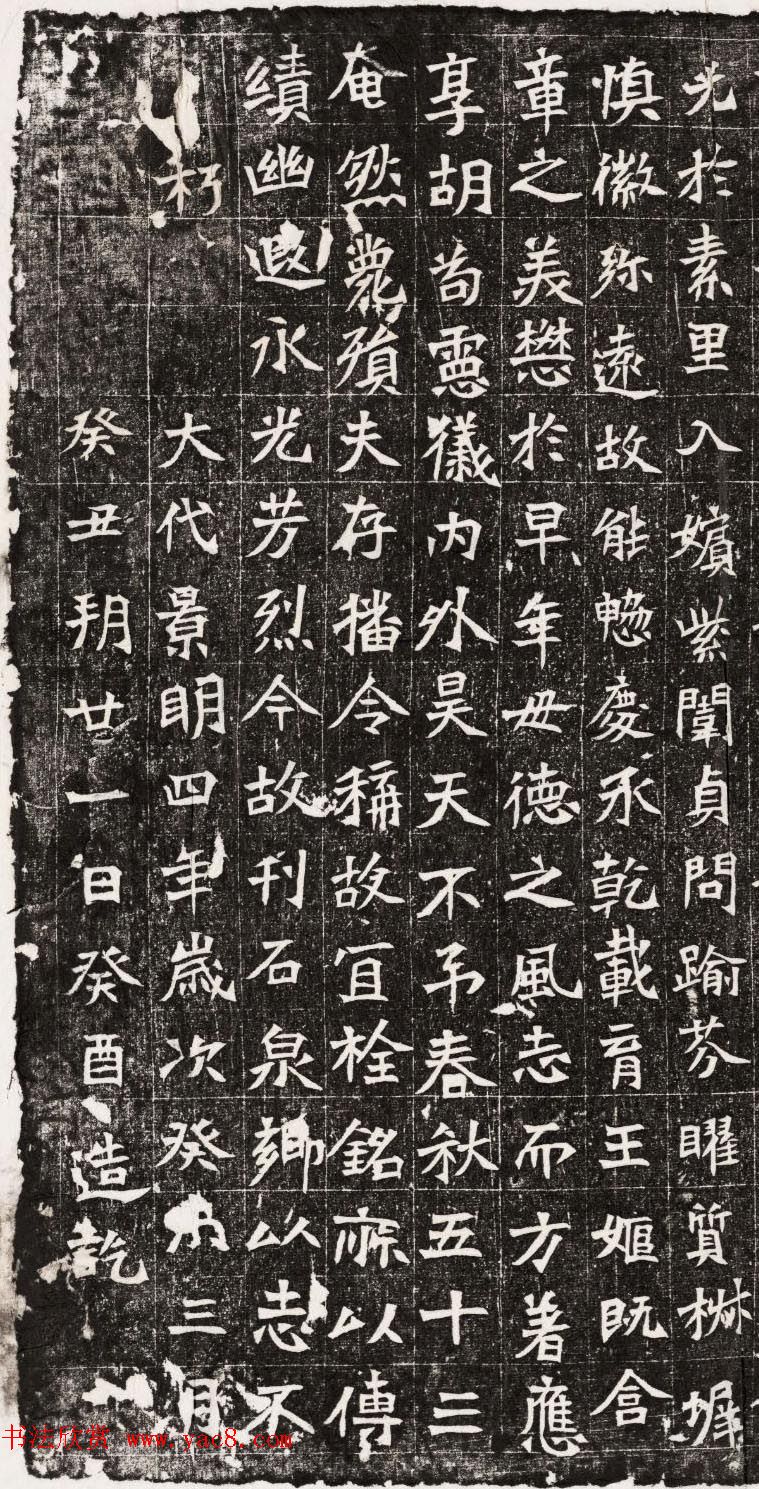 光於素里入嬪紫闈貞問踰芬曜質椒墀
慎徽弥遠故能惣慶承乾載育王姬既含
章之美懋於早年毋德之風志而方著應
享胡苟靈儀内外昊天不弔春秋五十三
奄然薨殞夫存播令稱故宜栓銘以傳
績幽遐永光芳烈今故刊石泉鄉以志不
朽 大代景明四年歲次癸未三月
癸丑朔廿一日癸酉造訖
书法欣赏 www.yac8.com